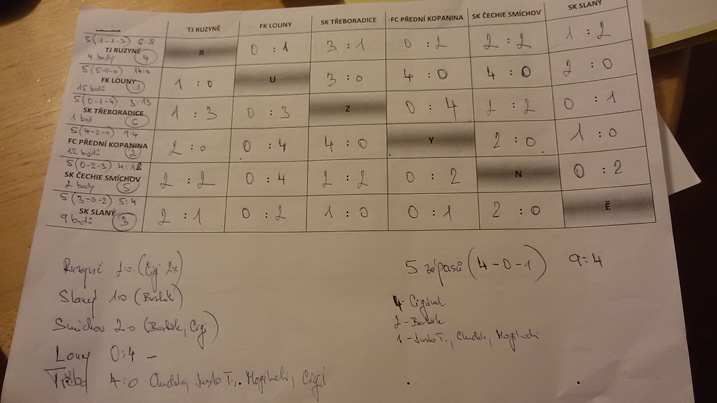 TJ RUZYNĚ FK LOUNY SK TŘEBORADICE FC PŘEDNÍ KOPANINA SK ČECHIE SMÍCHOV SK SLANÝ
5(1-1-3) 6:8
TJ RUZYNĚ R 0:1 3:1 0:2 2:2 1:2
4 body 4
5(5-0-0) 14:0
FK LOUNY 1:0 U 3:0 4:0 4:0 2:0
15 bodů 1
5(0-1-4) 3:13
SK TŘEBORADICE 1:3 0:3 Z 0:4 2:2 0:1
1 bod 6
5(4-0-1) 9:4
FC PŘEDNÍ KOPANINA 2:0 0:4 4:0 Y 2:0 1:0
12 bodů 2
5(0-2-3) 4:12
SK ČECHIE SMÍCHOV 2:2 0:4 2:2 0:2 N 0:2
2 body 5
5(3-0-2) 5:4
SK SLANÝ 2:1 0:2 1:0 0:1 2:0 Ě
9 bodů 3
Ruzyně 2:0 (Cigi 2x) 5 zápasů (4-0-1) 9:4
Slaný 1:0 (Barták) 4-
Smíchov 2:0 (Barták, Cigi) 2-Barták
Louny 0:4 - 1-
4:0 Cigi